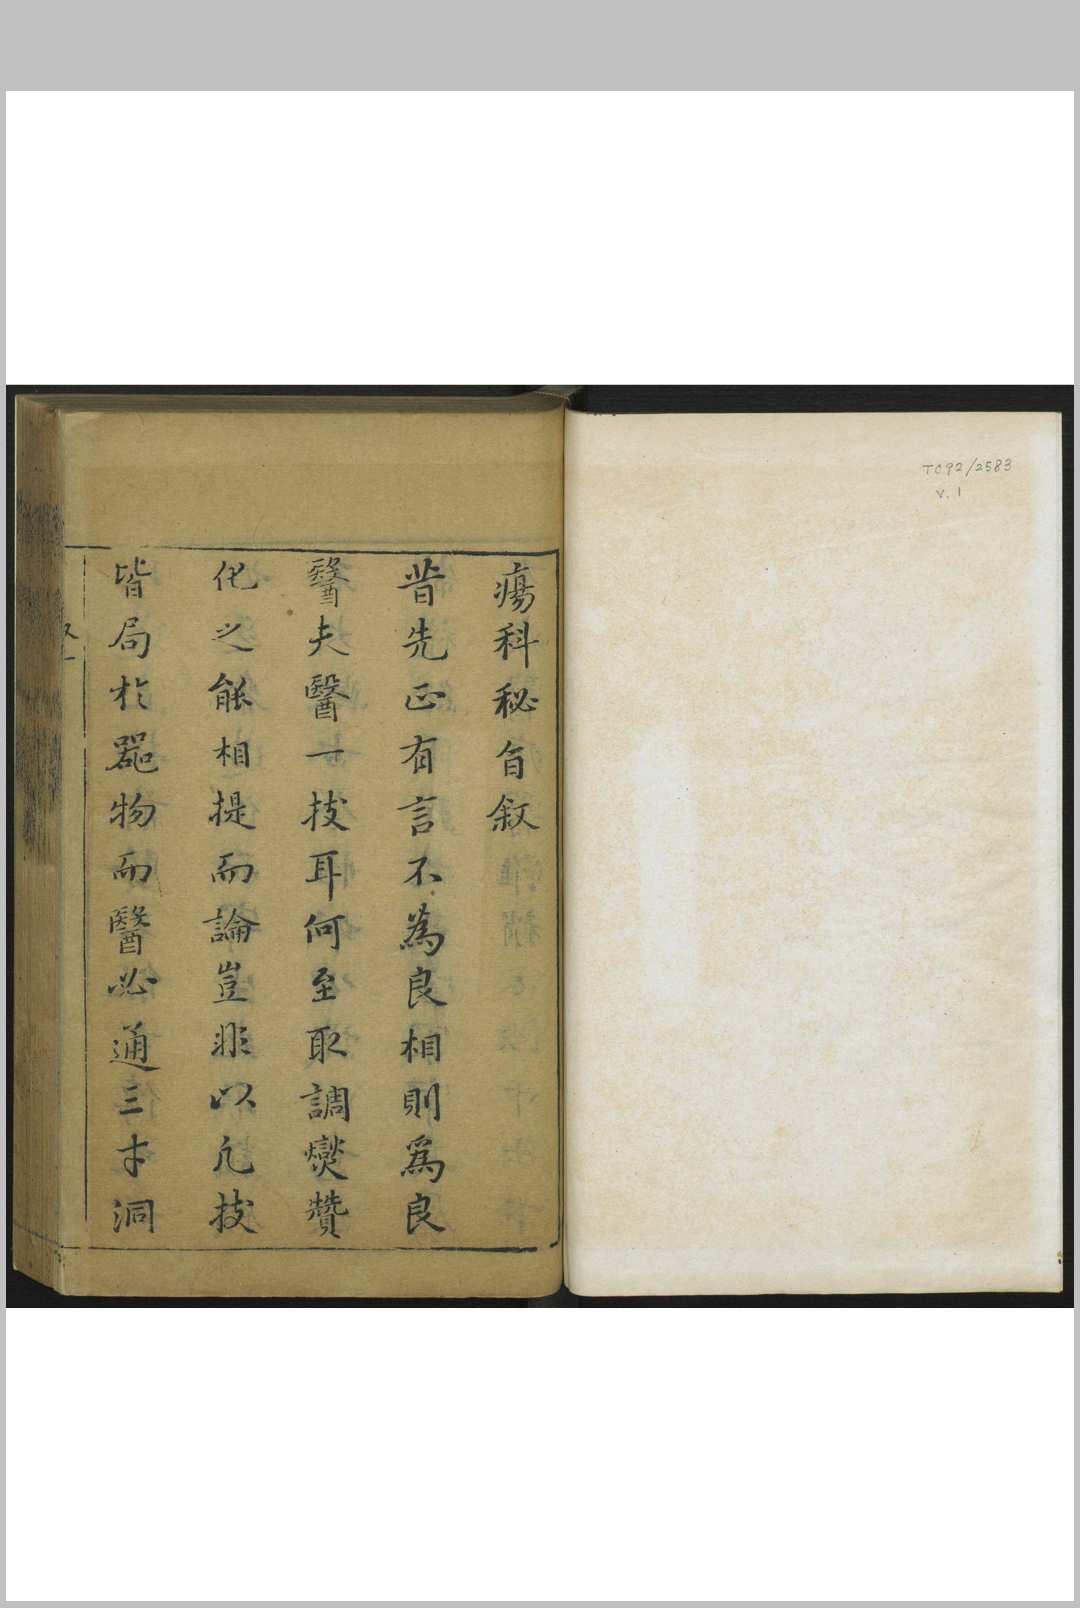 TC92/2583
v. 1
瘍科秘旨敘
昔先正有言不為良相則為良
醫夫醫一技耳何至取調燮贊
化之能相提而論豈非以凢技
皆局於噐物而醫必通三才洞